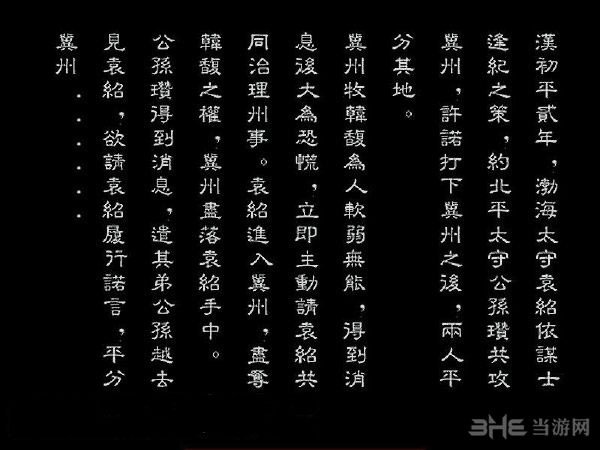 漢初平貳年，渤海太守袁紹依謀士
逢紀之策，約北平太守公孫瓚共攻
冀州，許諾打下冀州之後，兩人平
分其地。
冀州牧韓馥為人軟弱無能，得到消
息後大為恐慌，立即主動請袁紹共
同治理州事。袁紹進入冀州，盡奪
韓馥之權，冀州盡落袁紹手中。
公孫瓚得到消息，遣其弟公孫越去
見袁紹，欲請袁紹履行諾言，平分
冀州．．．．．
3HE 当游网